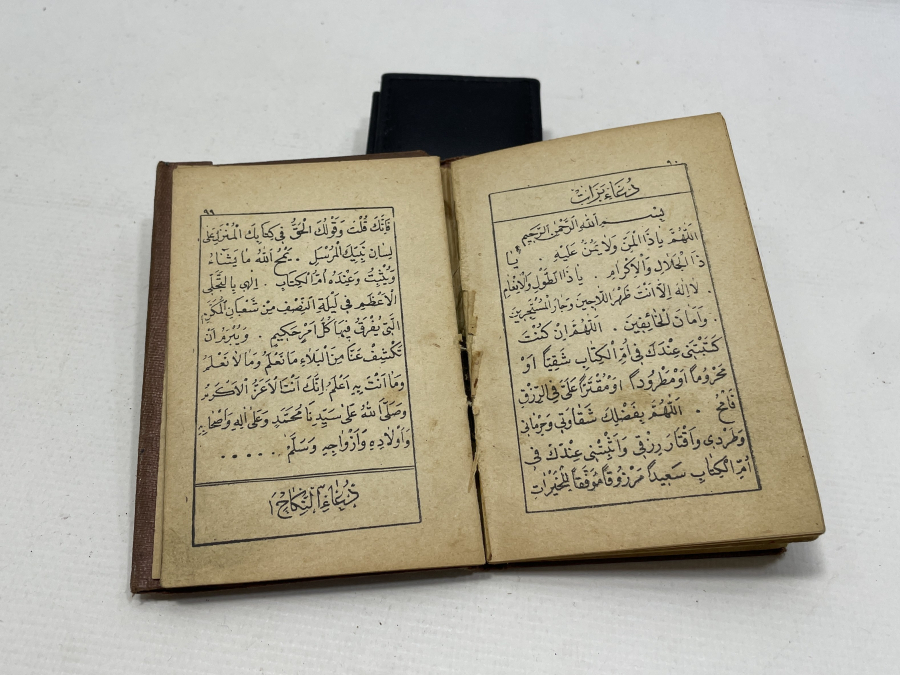 ٩٠
دُعَاءِ بَرَاتْ
بِسْمِ اللهِ الرَّحْمٰنِ الرَّحِيمِ
اَللّٰهُمَّ يَا ذَا الْمَنِّ وَلَا يُمَنُّ عَلَيْهِ . يَا
ذَا الْجَلَالِ وَالْاِكْرَامِ . يَا ذَا الطَّوْلِ وَالْاِنْعَامِ
. لَا اِلٰهَ اِلَّا اَنْتَ ظَهْرُ اللَّاجِينَ وَجَارُ الْمُسْتَجِيرِينَ
. وَاَمَانَ الْخَائِفِينَ . اَللّٰهُمَّ اِنْ كُنْتَ
كَتَبْتَنِى عِنْدَكَ فِى اُمِّ الْكِتَابِ شَقِيًّا اَوْ
مَحْرُومًا اَوْ مَطْرُودًا اَوْ مُقْتَرًّا عَلَىَّ فِى الرِّزْقِ
فَامْحُ . اَللّٰهُمَّ بِفَضْلِكَ شَقَاوَتِى وَحِرْمَانِى
وَطَرْدِى وَاقْتَارَ رِزْقِى وَاَثْبِتْنِى عِنْدَكَ فِى
اُمِّ الْكِتَابِ سَعِيدًا مَرْزُوقًا مُوَفَّقًا لِلْخَيْرَاتِ
٩٩
فَاِنَّكَ قُلْتَ وَقَوْلُكَ الْحَقُّ فِى كِتَابِكَ الْمُنْزَلِ عَلٰى
لِسَانِ نَبِيِّكَ الْمُرْسَلِ . يَمْحُ اللهُ مَا يَشَاءُ
وَيُثْبِتُ وَعِنْدَهُ اُمُّ الْكِتَابِ . اِلٰهِى بِالتَّجَلِّى
الْاَعْظَمِ فِى لَيْلَةِ النِّصْفِ مِنْ شَعْبَانَ الْمُكَرَّمِ
الَّتِى يُفْرَقُ فِيهَا كُلُّ اَمْرٍ حَكِيمٍ . وَيُبْرَمُ اَنْ
تَكْشِفَ عَنَّا مِنَ الْبَلَاءِ مَا نَعْلَمُ وَمَا لَا نَعْلَمُ
وَمَا اَنْتَ بِهِ اَعْلَمُ اِنَّكَ اَنْتَ الْاَعَزُّ الْاَكْرَمُ
وَصَلَّى اللهُ عَلٰى سَيِّدِنَا مُحَمَّدٍ وَعَلٰى اٰلِهِ وَاَصْحَابِهِ
وَاَوْلَادِهِ وَاَزْوَاجِهِ وَسَلَّمَ . . . . .
دُعَاءِ النِّكَاحْ